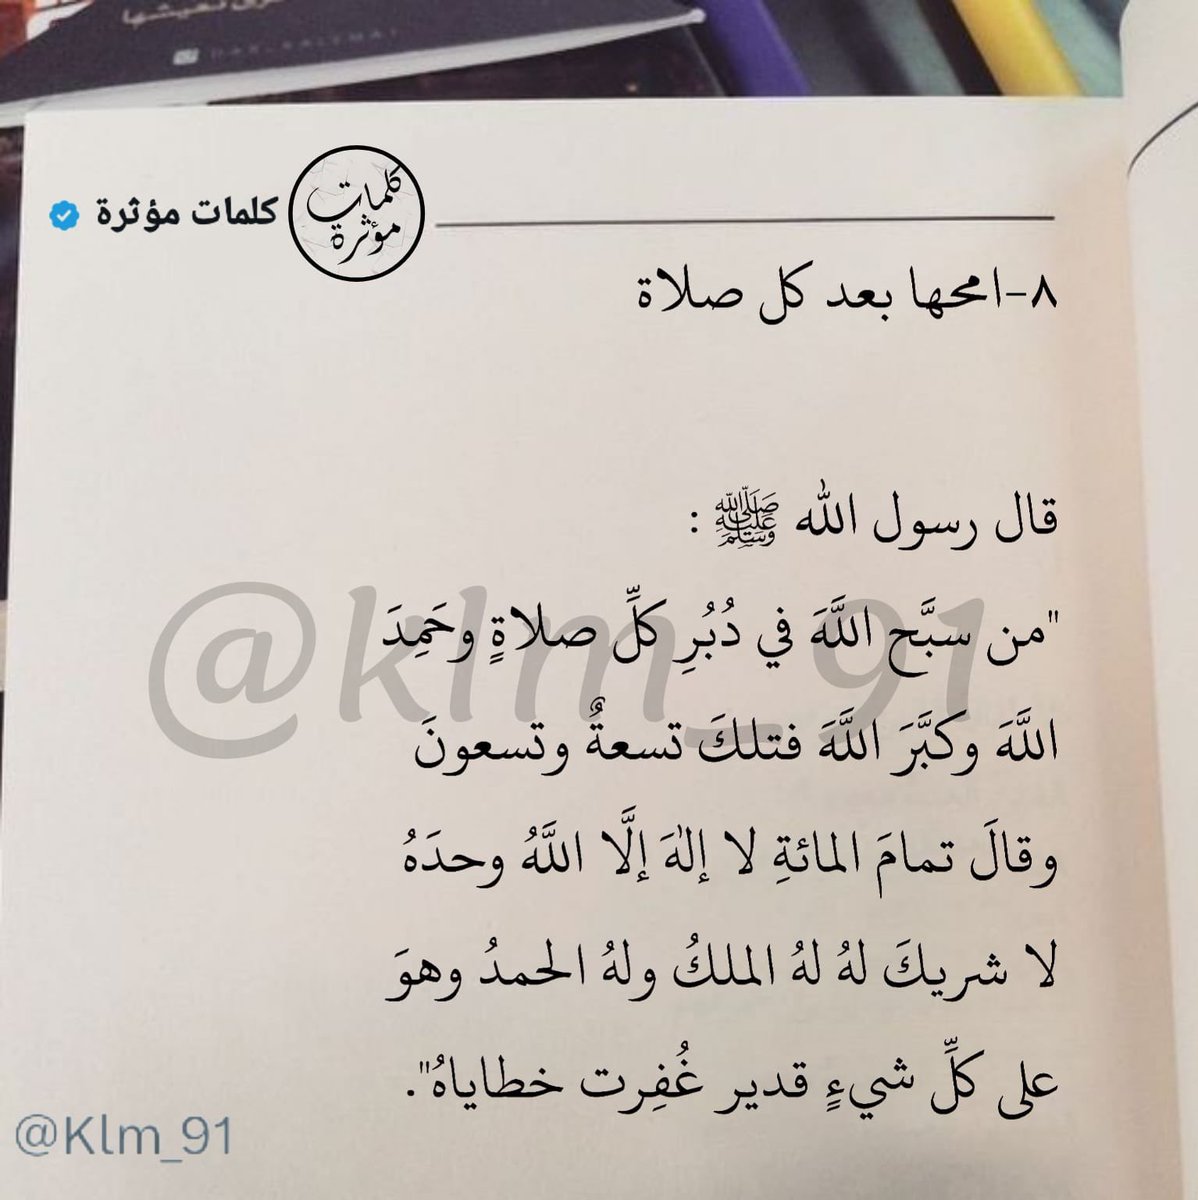 نعيشها
كلمات مؤثرة
كلمات
مؤثرة
٨-امحها بعد كل صلاة
قال رسول الله ﷺ :
"من سبَّح اللَّهَ في دُبُرِ كلِّ صلاةٍ وحَمِدَ
اللَّهَ وكبَّرَ اللَّهَ فتلكَ تسعةٌ وتسعونَ
وقالَ تمامَ المائةِ لا إلهَ إلَّا اللَّهُ وحدَهُ
لا شريكَ لهُ لهُ الملكُ ولهُ الحمدُ وهوَ
على كلِّ شيءٍ قدير غُفِرت خطاياهُ".
@klm_91
@Klm_91